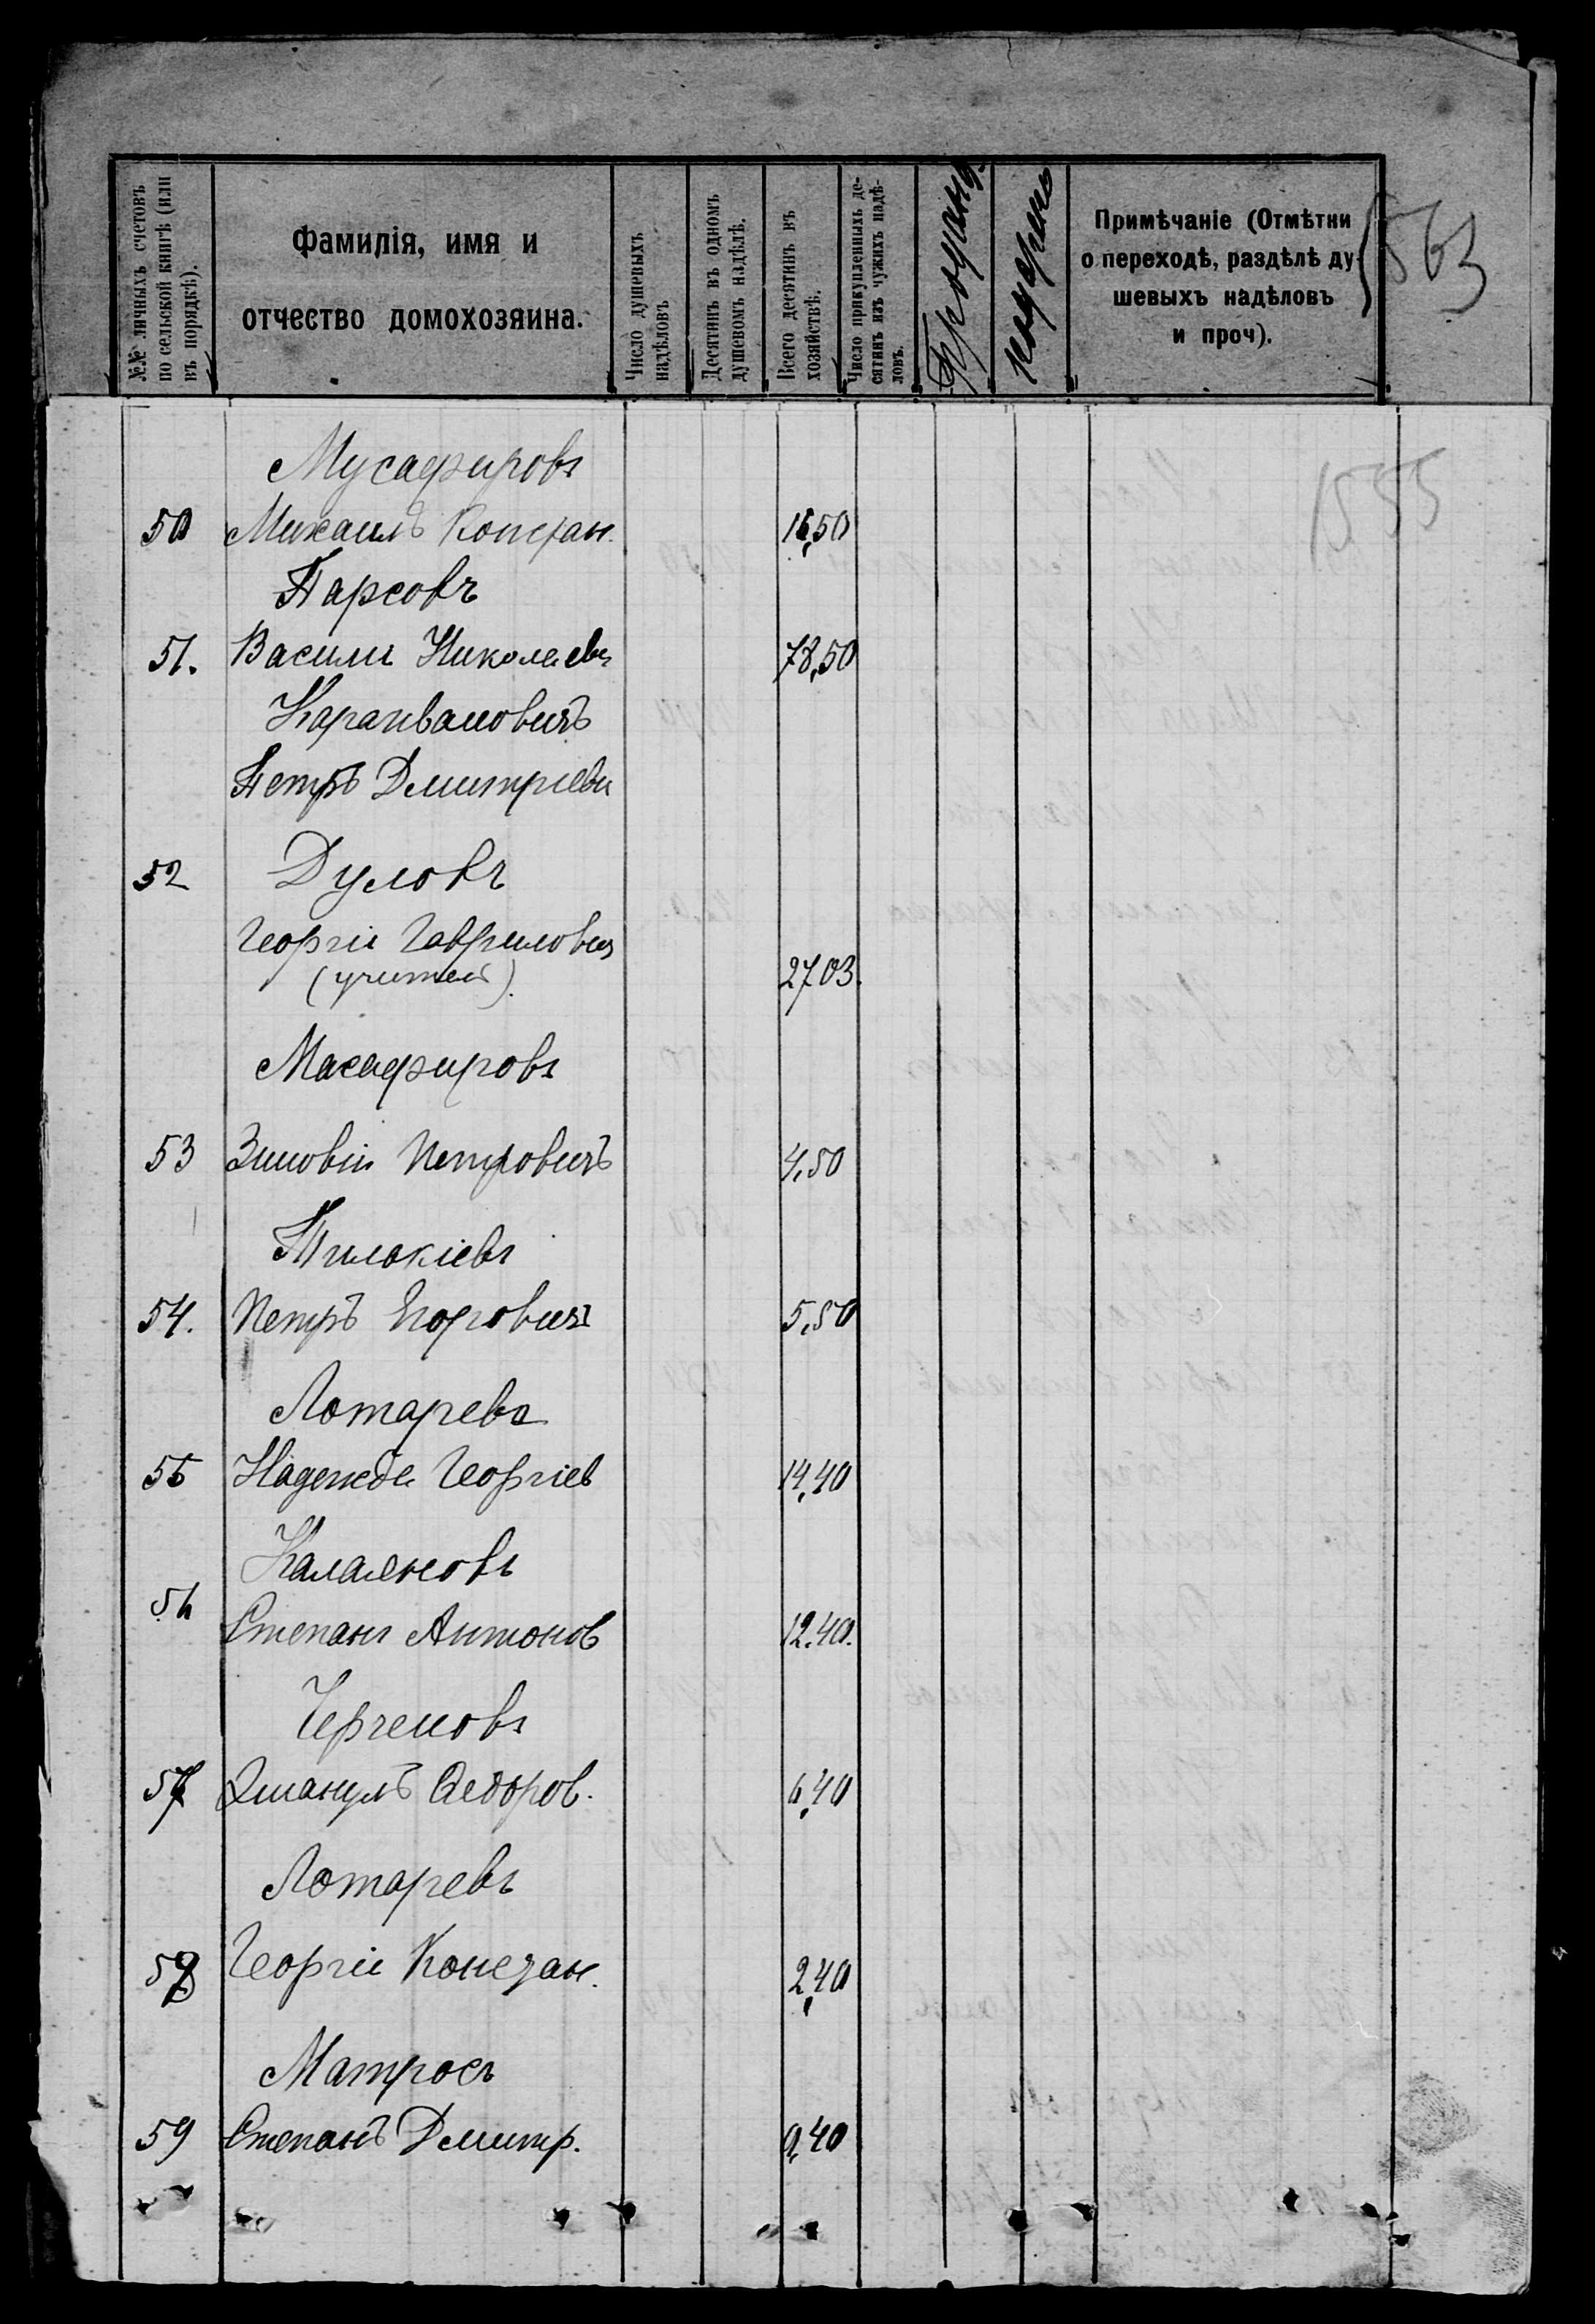 №№ личныхъ счетовъ
по сельской книгѣ (или
въ порядкѣ).
Фамилія, имя и
отчество домохозяина.
Число душевыхъ
надѣловъ
Десятинъ въ одномъ
душевомъ надѣлѣ.
Всего десятинъ въ
хозяйствѣ.
Число прикупленныхъ де-
сятинъ изъ чужихъ надѣ-
ловъ.
Примѣчаніе (Отмѣтки
о переходѣ, раздѣлѣ ду-
шевыхъ надѣловъ
и проч).
563
1555
Мусафировъ
50 Михаилъ Констан. 15,50
Парсовъ
51. Василій Николаевъ 78,50
Караивановичъ
Петръ Дмитріеви
52 Дуловъ
Георгіи Гавриловичъ
(учитель). 27,03.
Масафировъ
53 Зиновіи Петровичъ 4,50
Пилакіевъ
54. Петръ Егоровичъ 5,50
Лотарева
55 Надежда Георгіев 14,40
Калаяновъ
56 Степанъ Антонов 12,40.
Чергеновъ
57 Эмануилъ Федоров. 6,40
Лотаревъ
58 Георгіи Констан. 2,40
Матросъ
59 Степанъ Дмитр. 9,40